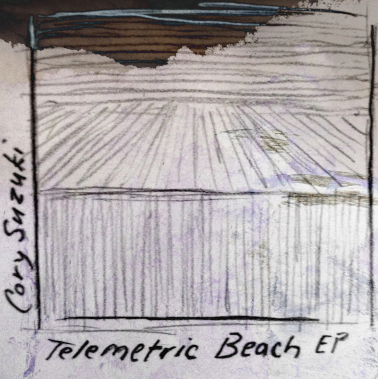 Cory Suzuki
Telemetric Beach EP